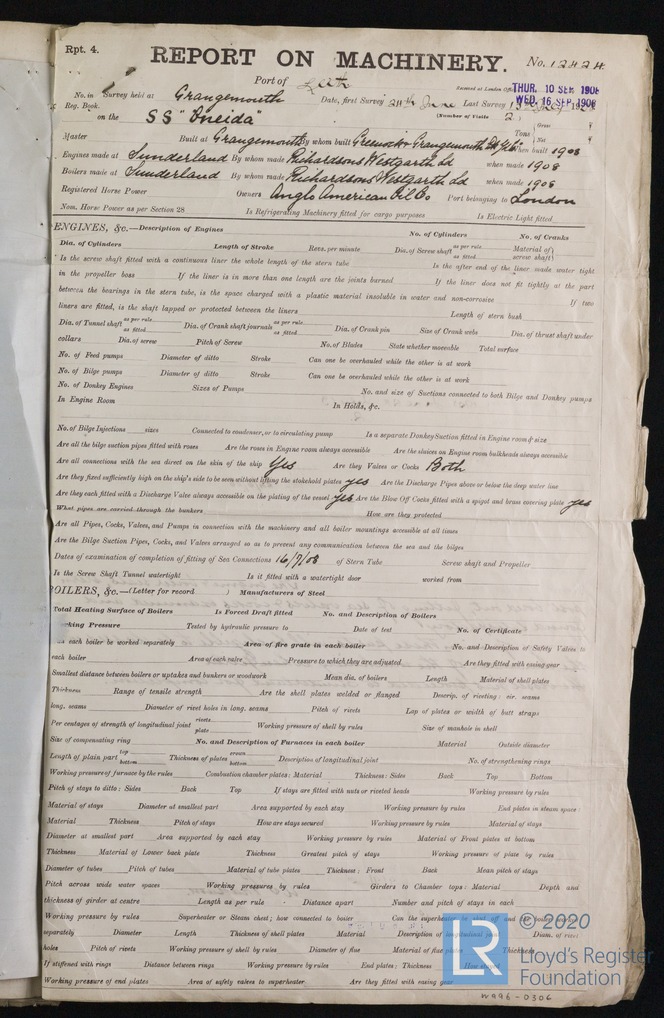 Rpt. 4.
REPORT ON MACHINERY.
No. 12424
Port of Leith
Received at London Office THUR. 10 SEP. 1908
WED. 16 SEP. 1908
No. in Survey held at Grangemouth Date, first Survey 24th June Last Survey
Reg. Book.
(Number of Visits 2)
on the SS "Oneida"
Tons { Gross
Net
Master Built at Grangemouth By whom built Greenock & Grangemouth When built 1908
Engines made at Sunderland By whom made Richardsons Westgarth Ld when made 1908
Boilers made at Sunderland By whom made Richardsons Westgarth Ld when made 1908
Registered Horse Power Owners Anglo American Oil Co Port belonging to London
Nom. Horse Power as per Section 28 Is Refrigerating Machinery fitted for cargo purposes Is Electric Light fitted
ENGINES, &c.—Description of Engines No. of Cylinders No. of Cranks
Dia. of Cylinders Length of Stroke Revs. per minute Dia. of Screw shaft as per rule as fitted Material of screw shaft
Is the screw shaft fitted with a continuous liner the whole length of the stern tube Is the after end of the liner made water tight
in the propeller boss If the liner is in more than one length are the joints burned If the liner does not fit tightly at the part
between the bearings in the stern tube, is the space charged with a plastic material insoluble in water and non-corrosive If two
liners are fitted, is the shaft lapped or protected between the liners Length of stern bush
Dia. of Tunnel shaft as per rule as fitted Dia. of Crank shaft journals as per rule as fitted Dia. of Crank pin Size of Crank webs Dia. of thrust shaft under
collars Dia. of screw Pitch of Screw No. of Blades State whether moveable Total surface
No. of Feed pumps Diameter of ditto Stroke Can one be overhauled while the other is at work
No. of Bilge pumps Diameter of ditto Stroke Can one be overhauled while the other is at work
No. of Donkey Engines Sizes of Pumps No. and size of Suctions connected to both Bilge and Donkey pumps
In Engine Room In Holds, &c.
No. of Bilge Injections sizes Connected to condenser, or to circulating pump Is a separate Donkey Suction fitted in Engine room & size
Are all the bilge suction pipes fitted with roses Are the roses in Engine room always accessible Are the sluices on Engine room bulkheads always accessible
Are all connections with the sea direct on the skin of the ship Yes Are they Valves or Cocks Both
Are they fixed sufficiently high on the ship's side to be seen without lifting the stokehold plates yes Are the Discharge Pipes above or below the deep water line
Are they each fitted with a Discharge Valve always accessible on the plating of the vessel yes Are the Blow Off Cocks fitted with a spigot and brass covering plate yes
What pipes are carried through the bunkers How are they protected
Are all Pipes, Cocks, Valves, and Pumps in connection with the machinery and all boiler mountings accessible at all times
Are the Bilge Suction Pipes, Cocks, and Valves arranged so as to prevent any communication between the sea and the bilges
Dates of examination of completion of fitting of Sea Connections 16/7/08 of Stern Tube Screw shaft and Propeller
Is the Screw Shaft Tunnel watertight Is it fitted with a watertight door worked from
BOILERS, &c.—(Letter for record ) Manufacturers of Steel
Total Heating Surface of Boilers Is Forced Draft fitted No. and Description of Boilers
Working Pressure Tested by hydraulic pressure to Date of test No. of Certificate
each boiler be worked separately Area of fire grate in each boiler No. and Description of Safety Valves to
each boiler Area of each valve Pressure to which they are adjusted Are they fitted with easing gear
Smallest distance between boilers or uptakes and bunkers or woodwork Mean dia. of boilers Length Material of shell plates
Thickness Range of tensile strength Are the shell plates welded or flanged Descrip. of riveting: cir. seams
long. seams Diameter of rivet holes in long. seams Pitch of rivets Lap of plates or width of butt straps
Per centages of strength of longitudinal joint rivets plate Working pressure of shell by rules Size of manhole in shell
Size of compensating ring No. and Description of Furnaces in each boiler Material Outside diameter
Length of plain part top bottom Thickness of plates crown bottom Description of longitudinal joint No. of strengthening rings
Working pressure of furnace by the rules Combustion chamber plates: Material Thickness: Sides Back Top Bottom
Pitch of stays to ditto: Sides Back Top If stays are fitted with nuts or riveted heads Working pressure by rules
Material of stays Diameter at smallest part Area supported by each stay Working pressure by rules End plates in steam space:
Material Thickness Pitch of stays How are stays secured Working pressure by rules Material of stays
Diameter at smallest part Area supported by each stay Working pressure by rules Material of Front plates at bottom
Thickness Material of Lower back plate Thickness Greatest pitch of stays Working pressure of plate by rules
Diameter of tubes Pitch of tubes Material of tube plates Thickness: Front Back Mean pitch of stays
Pitch across wide water spaces Working pressures by rules Girders to Chamber tops: Material Depth and
thickness of girder at centre Length as per rule Distance apart Number and pitch of stays in each
Working pressure by rules Superheater or Steam chest; how connected to boiler Can the superheater be shut off and the boiler
separately Diameter Length Thickness of shell plates Material Description of longitudinal joint Diam. of rivet
holes Pitch of rivets Working pressure of shell by rules Diameter of flue Material of flue plates Thickness
If stiffened with rings Distance between rings Working pressure by rules End plates: Thickness How stayed
Working pressure of end plates Area of safety valves to superheater Are they fitted with easing gear
LR
© 2020
Lloyd's Register
Foundation
W996-0306